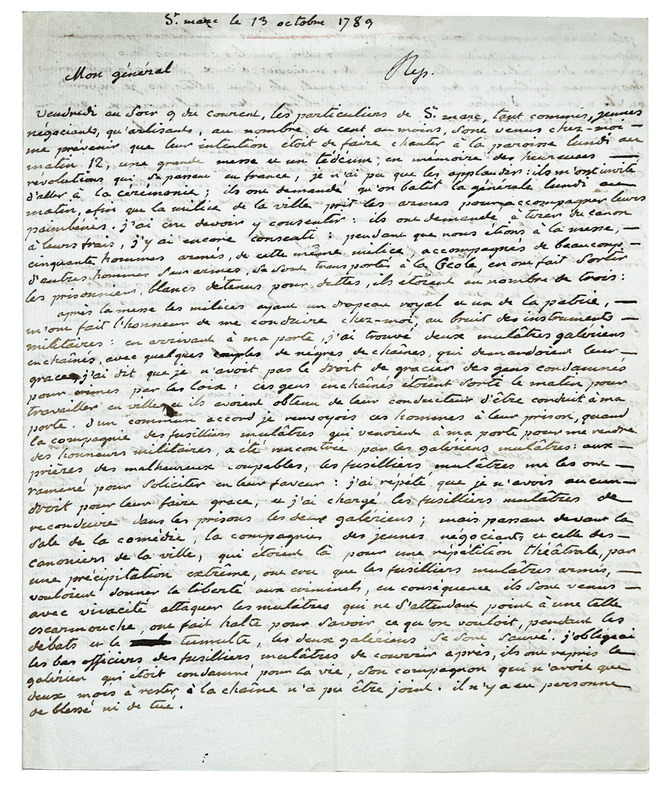 St. marc le 13 octobre 1789
Mon général
Rep.
vendredi au soir 9 du courent, les particuliers de St. marc, tant commis, jeunes
négociants, qu'artisants, au nombre de cent au moins, sont venus chez-moi
me prévenir que leur intention étoit de faire chanter à la paroisse lundi au
matin 12, une grande messe et un tédeum en mémoire des heureuses
révolutions, qui se passent en france, je n'ai pu que les applaudir: ils m'ont invité
d'aller à la cérémonie; ils ont demandé qu'on batit la générale lundi au
matin, afin que la milice de la ville prit les armes pour accompagner leurs
painbenis: j'ai cru devoir y consentir: ils ont demandé à tirer du canon
à leurs frais, j'y ai encore consenti: pendant que nous étions à la messe,
cinquante hommes armés, de cette même milice, accompagnés de beaucoup
d'autres hommes sur armes, se sont transportés à la Geole, en ont fait sortir
les prisonniers blancs detenus pour dettes, ils étoient au nombre de trois:
après la messe les milices ayant un drapeau royal et un de la patrie,
m'ont fait l'honneur de me conduire chez-moi, au bruit des instruments
militaires: en arrivant à ma porte, j'ai trouvé deux mulâtres galeriens
enchainés, avec quelques couples de nègres de chaines, qui demandoient leur
grace, j'ai dit que je n'avoit pas le droit de gracier des gens condamnés
pour crimes par les loix: ces gens enchaînés étoient sorti le matin pour
travailler en ville et ils avoient obtenu de leur conducteur d'être conduit à ma
porte. d'un commun accord je renvoyois ces hommes à leur prison, quand
la compagnie des fusilliers mulâtres qui venoient à ma porte pour me rendre
des honneurs militaires, a été rencontrée par les galériens mulâtres: aux
prières des malheureux coupables, les fusilliers mulâtres me les ont
ramené pour soliciter en leur faveur: j'ai répété que je n'avois aucun
droit pour leur faire grace, et j'ai chargé les fusilliers mulâtres de
reconduire dans les prisons les deux galériens; mais passant devant la
sale de la comédie, la compagnie des jeunes négociants et celle des
canoniers de la ville, qui étoient là pour une répétition théâtrale, par
une précipitation extrême, ont cru que les fusilliers mulâtres armés,
vouloient donner la liberté aux criminels, en conséquence ils sont venus
avec vivacité attaquer les mulâtres qui ne s'attendant point à une telle
escarmouche, ont fait halte pour savoir ce qu'on vouloit, pendant les
débats et le tumulte, les deux galeriens se sont sauvé. j'obligeai
les bas officiers des fusilliers mulâtres de courrir après, ils ont repris le
galerien qui étoit condamné pour la vie, son compagnon qui n'avoit que
deux mois à rester à la chaîne n'a pu être joint. il n'y a eu personne
de blessé ni de tué.